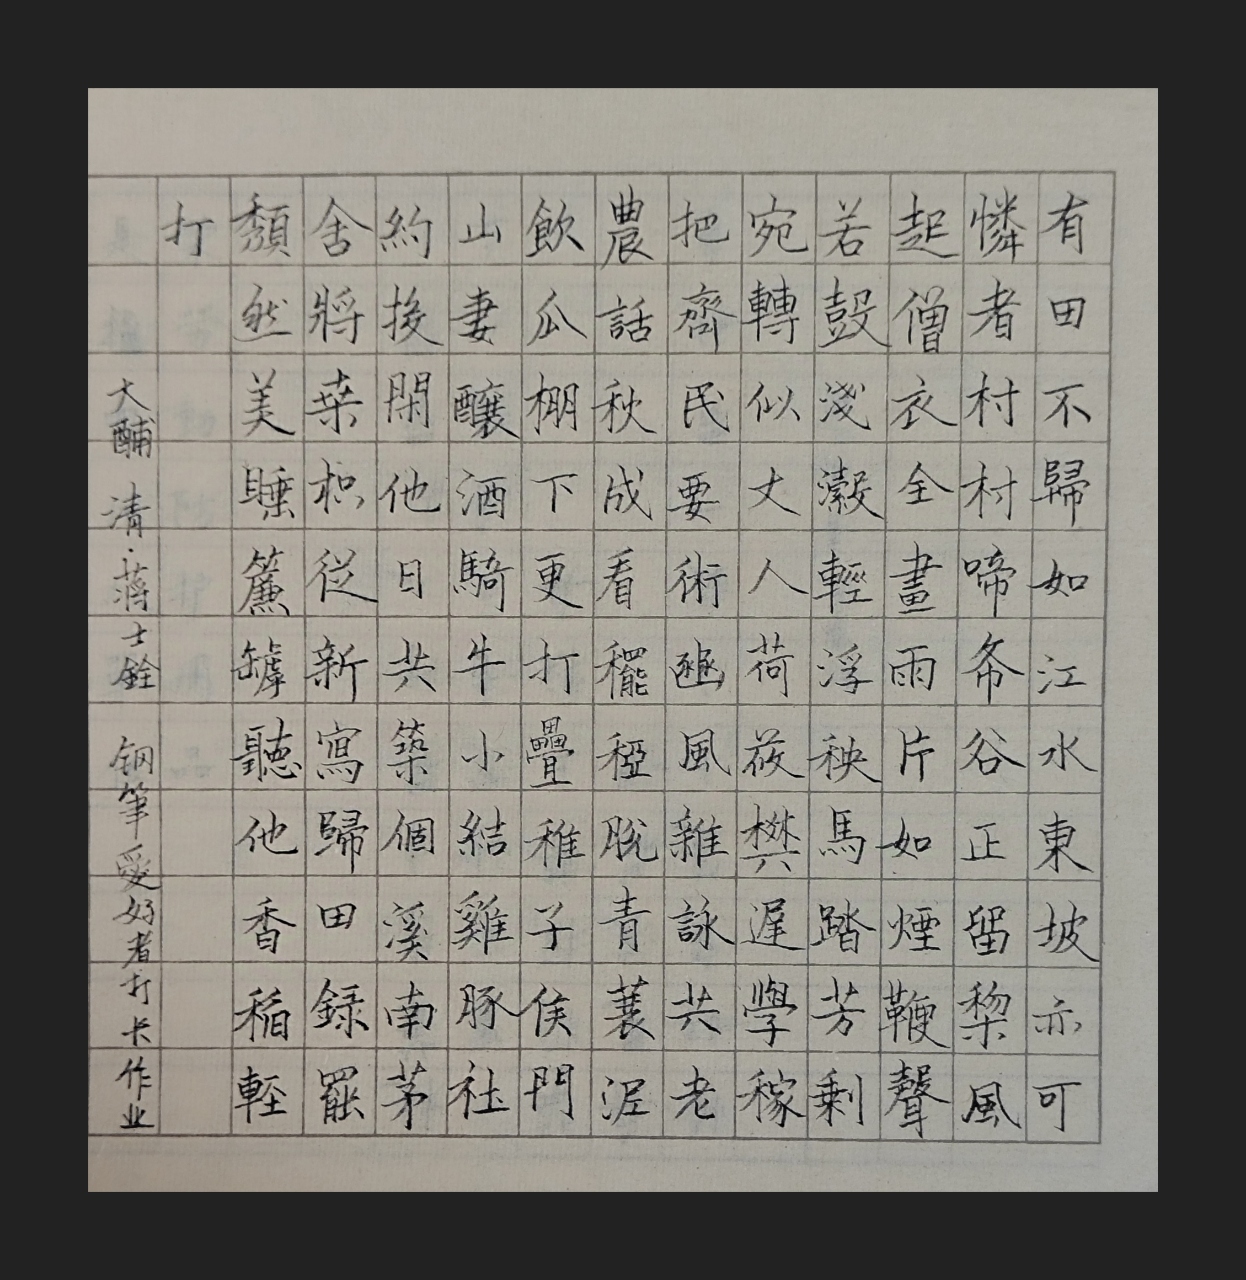 有田不歸如江水東坡亦可
憐者村村啼布谷正留棃風
起僧衣全畫雨片如煙鞭聲
若鼓淺瀫輕浮秧馬踏芳剩
宛轉似丈人荷莜樊遲學稼
把齊民要術豳風雜詠共老
農話秋成看䆉稏脫青蓑泥
飲瓜棚下更打疊稚子侯門
山妻釀酒騎牛小結雞豚社
約投閑他日共築個溪南茅
舍將桒枳從新寫歸田録罷
頽然美睡簾罅聽他香稻輕
打
大酺 清·蔣士銓 钢筆愛好者打卡作业